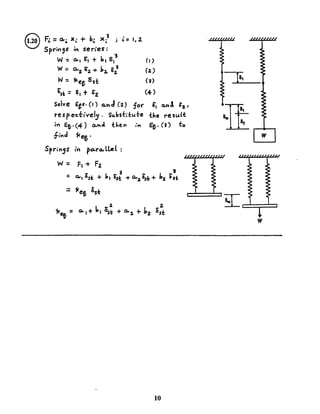 1.20 Fᵢ = aᵢ xᵢ + bᵢ xᵢ³ ; i = 1, 2
Springs in series:
W = a₁ δ₁ + b₁ δ₁³ (1)
W = a₂ δ₂ + b₂ δ₂³ (2)
W = k_eq δst (3)
δst = δ₁ + δ₂ (4)
Solve Eqs. (1) and (2) for δ₁ and δ₂,
respectively. Substitute the result
in Eq. (4) and then in Eq. (3) to
find k_eq.
Springs in parallel:
W = F₁ + F₂
= a₁ δst + b₁ δst³ + a₂ δst + b₂ δst³
= k_eq δst
k_eq = a₁ + b₁ δst² + a₂ + b₂ δst²
δ₁
δ₁
δst
δ₂
W
δst
W
10